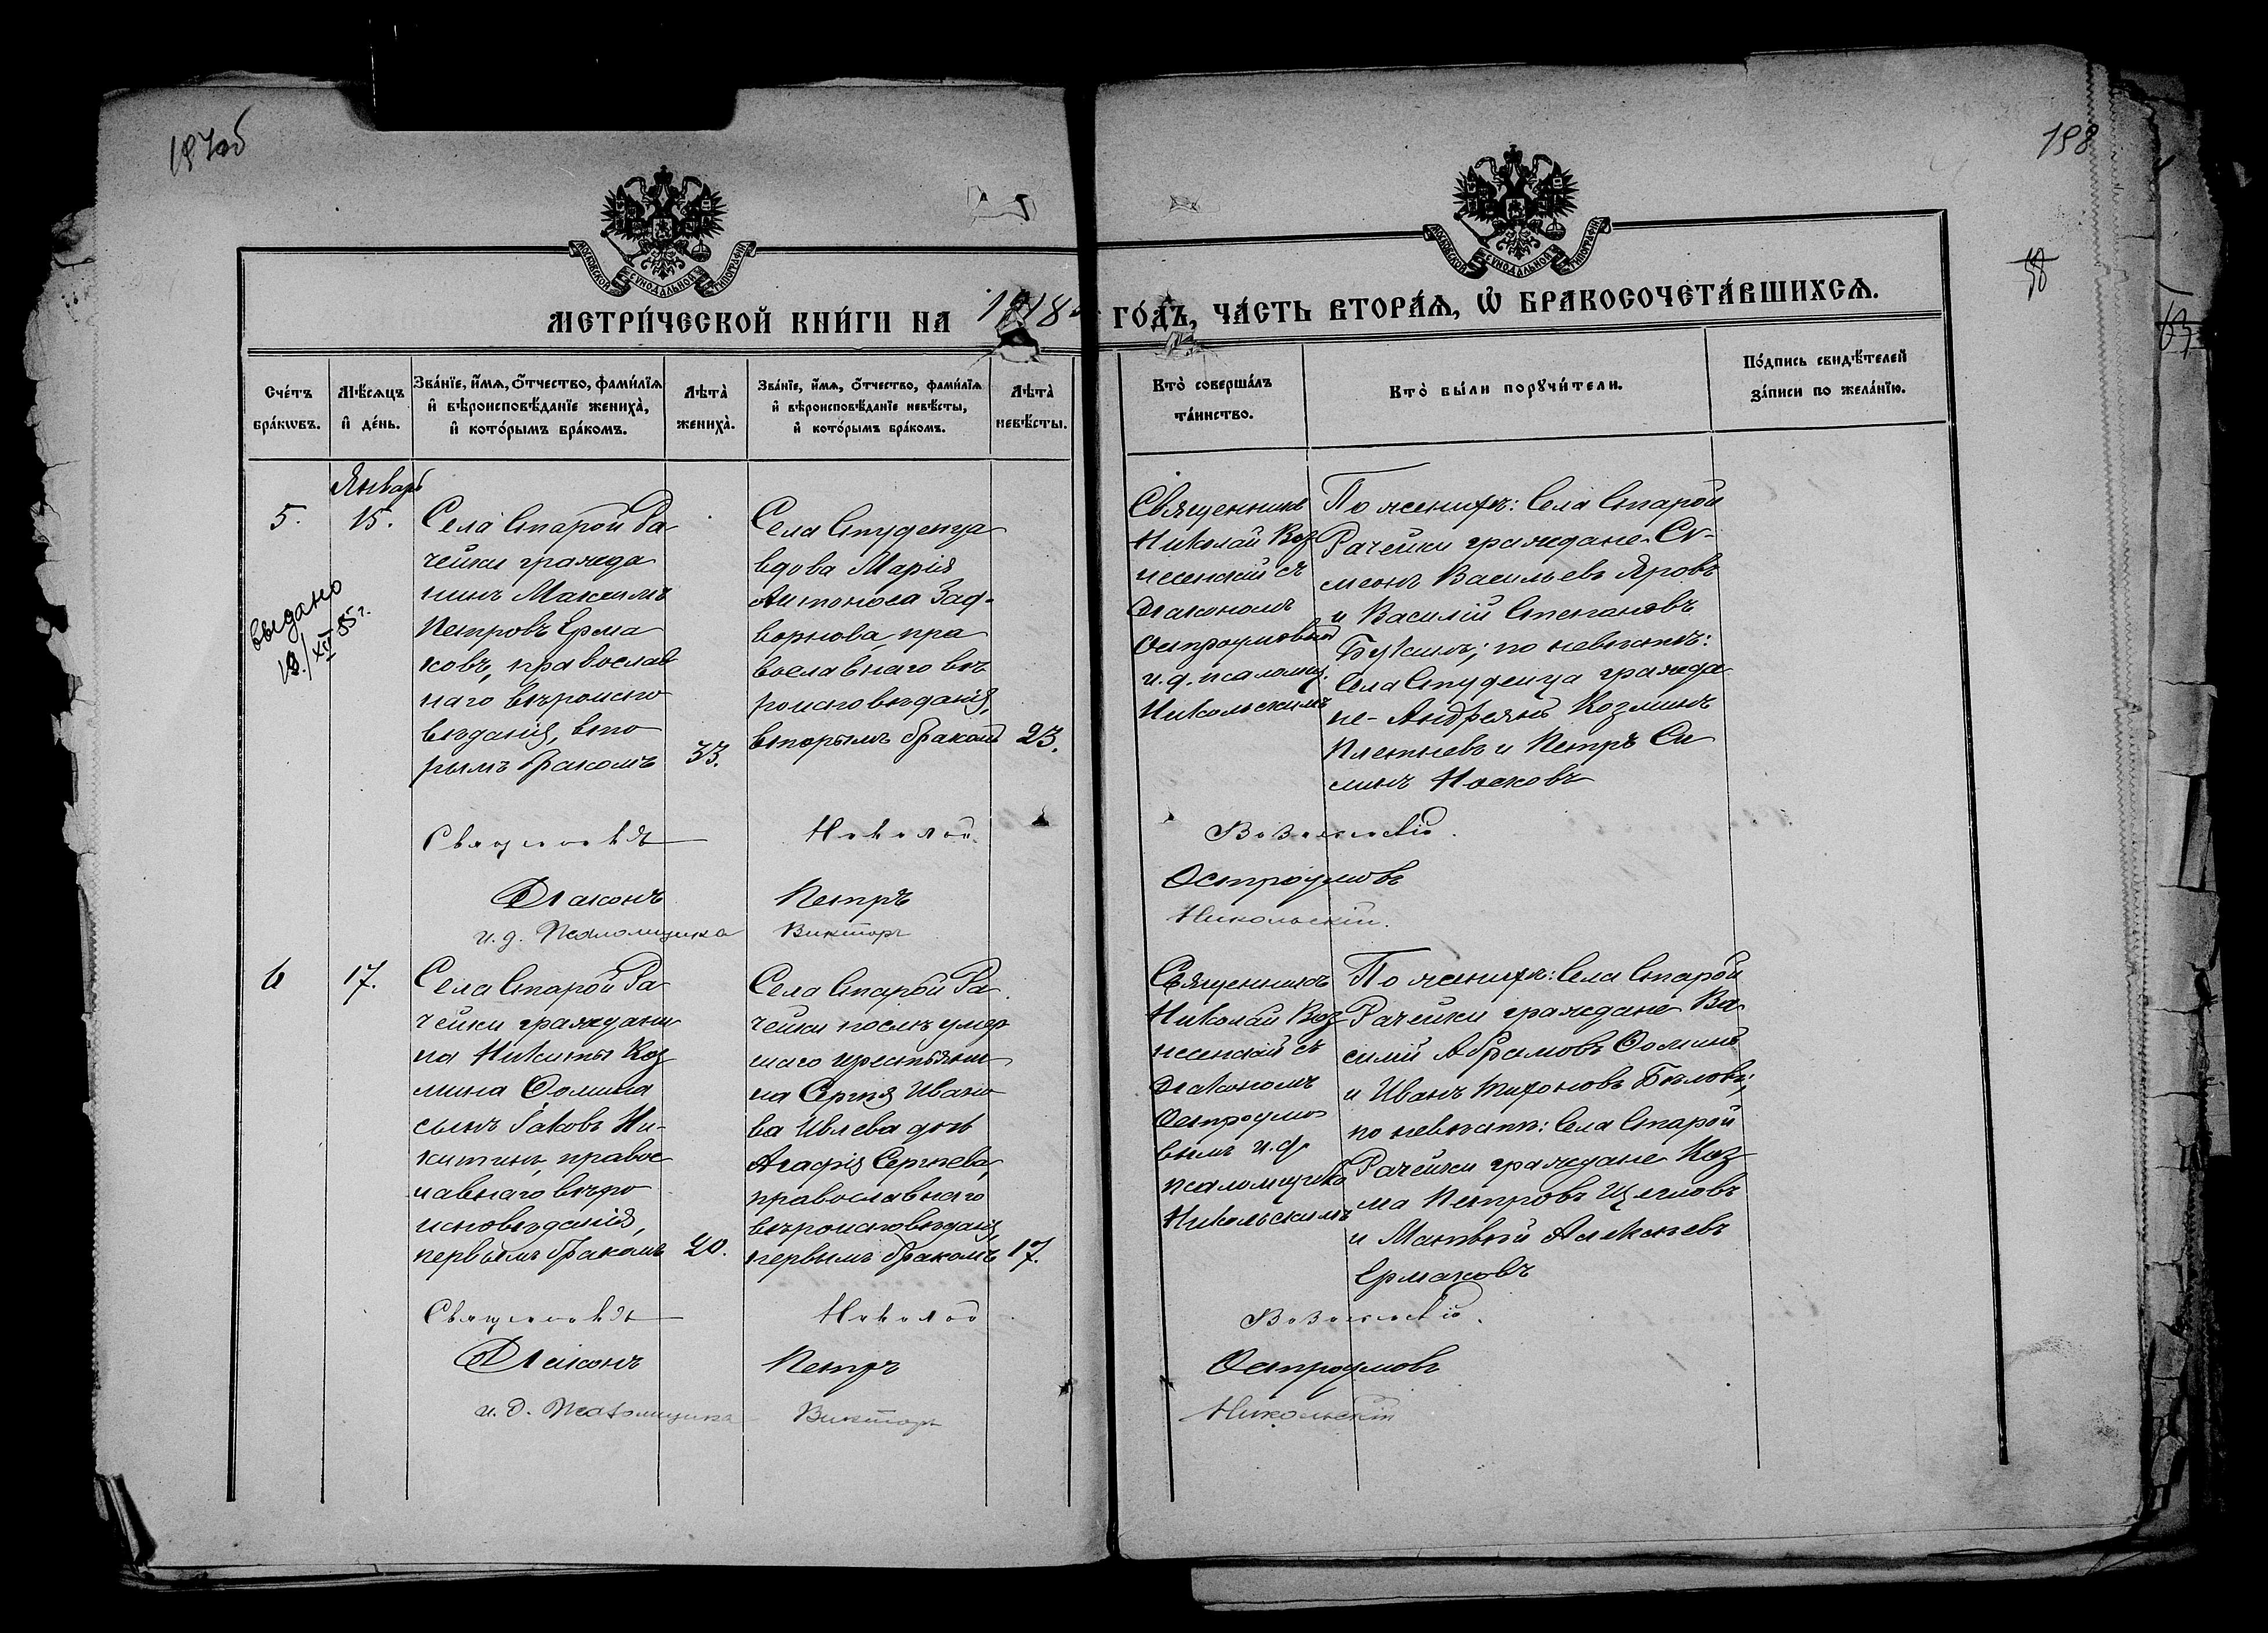 187об
198
58
63
МОСКОВСКОЙ СѴНОДАЛЬНОЙ ТИПОГРАФІИ
МОСКОВСКОЙ СѴНОДАЛЬНОЙ ТИПОГРАФІИ
МЕТРИ́ЧЕСКОЙ КНИ́ГИ НА 1918 ГО́ДЪ, ЧА́СТЬ ВТОРА́Я, Ѡ҆ БРАКОСОЧЕТА́ВШИХСЯ.
Сче́тъ бра́кѡвъ.
Мѣ́сяцъ и҆ де́нь.
Зва́нїе, и҆́мя, ѻ҆́тчество, фами́лїя и҆ вѣроисповѣ́данїе жениха̀, и҆ кото́рымъ бра́комъ.
Лѣта̀ жениха̀.
Зва́нїе, и҆́мя, ѻ҆́тчество, фами́лїя и҆ вѣроисповѣ́данїе невѣ́сты, и҆ кото́рымъ бра́комъ.
Лѣта̀ невѣ́сты.
Кто̀ соверша́лъ та́инство.
Кто̀ бы́ли порꙋчи́тели.
По́дпись свидѣ́телей за́писи по жела́нїю.
5.
выдано
19/XII 55 г.
Январь
15.
Села Старой Ра
чейки гражда
нинъ Максимъ
Петровъ Ерма
ковъ, православ
наго вѣроиспо
вѣданія, вто
рымъ бракомъ
33.
Села Студенца
вдова Марія
Антонова Зад-
ворнова, пра
вославнаго вѣ
роисповѣданія,
вторымъ бракомъ
23.
Священникъ
Николай Воз
несенскій съ
Діакономъ
Остроумовымъ
и.д. псаломщ.
Никольскимъ
По женихѣ: Села Старой
Рачейки граждане Си-
меонъ Васильевъ Яровъ
и Василій Степановъ
Букинъ; по невѣстѣ:
Села Студенца гражда
не- Андреянъ Козминъ
Плетневъ и Петръ Си
минъ Носковъ
Священникъ Николай Вознесенскій.
Діаконъ Петръ Остроумовъ
и.д. Псаломщика Викторъ Никольскій.
6
17.
Села Старой Ра
чейки граждани
на Никиты Коз
мина Ѳомина
сынъ Іаковъ Ни-
китинъ, правос
лавнаго вѣро
исповѣданія,
первымъ бракомъ
20.
Села Старой Ра
чейки послѣ умер
шаго крестьяни
на Сергѣя Ивано
ва Ивлева дочь
Агафія Сергѣева,
православнаго
вѣроисповѣданія,
первымъ бракомъ
17.
Священникъ
Николай Воз
несенскій съ
Діакономъ
Остроумо
вымъ и.д.
псаломщика
Никольскимъ
По женихѣ: Села Старой
Рачейки граждане Ва
силій Абрамовъ Ѳоминъ
и Иванъ Тихоновъ Бѣловъ;
по невѣстѣ: Села Старой
Рачейки граждане Коз
ма Петровъ Щегловъ
и Матвѣй Алексѣевъ
Ермаковъ
Священникъ Николай Вознесенскій.
Діаконъ Петръ Остроумовъ
и.д. Псаломщика Викторъ Никольскій